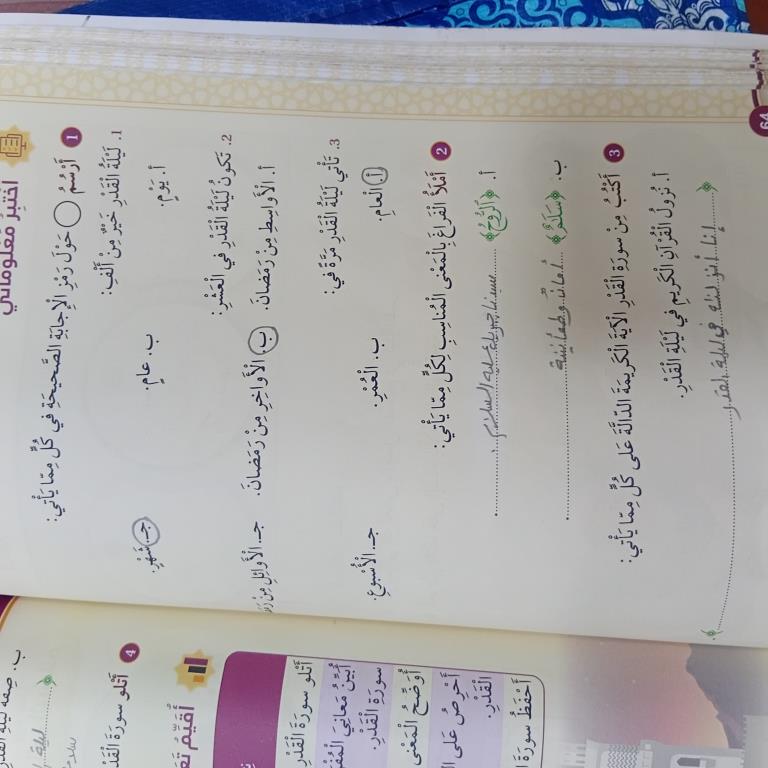 اختبر معلوماتي
1 أَرْسُمُ ◯ حَوْلَ رَمْزِ الْإِجابَةِ الصَّحيحَةِ في كُلٍّ مِمّا يَأْتي:
1. لَيْلَةُ الْقَدْرِ خَيْرٌ مِنْ أَلْفِ:
أ. يَوْمٍ. ب. عامٍ. جـ. شَهْرٍ.
2. تَكونُ لَيْلَةُ الْقَدْرِ في الْعَشْرِ:
أ. الْأَواسِطِ مِنْ رَمَضانَ. ب. الْأَواخِرِ مِنْ رَمَضانَ. جـ. الْأَوائِلِ مِنْ
3. تَأْتي لَيْلَةُ الْقَدْرِ مَرَّةً في:
أ. الْعامِ. ب. الْعُمْرِ. جـ. الْأُسْبوعِ.
2 أَمْلَأُ الْفَراغَ بِالْمَعْنى الْمُناسِبِ لِكُلٍّ مِمّا يَأْتي:
أ. ﴿الرُّوحُ﴾ سيدنا جبريل عليه السلام.
ب. ﴿سَلَامٌ﴾ أمان وطمأنينة
3 أَكْتُبُ مِنْ سورَةِ الْقَدْرِ الْآيَةَ الْكَريمَةَ الدّالَّةَ عَلى كُلٍّ مِمّا يَأْتي:
أ. نُزولُ الْقُرْآنِ الْكَريمِ في لَيْلَةِ الْقَدْرِ.
﴿ إنا أنزلنه في ليلة القدر ﴾
64
ب. صِفَةُ لَيْلَةِ
﴿ ليلة
4 أَتْلو سورَةَ
أُقَيِّمُ
أَتْلو سورَةَ الْقَدْرِ
أُبَيِّنُ مَعانِيَ
سورَةِ الْقَدْرِ.
أُوَضِّحُ الْمَعْنى
أَحْرِصُ عَلى
الْقَدْرِ.
أَحْفَظُ سورَةَ